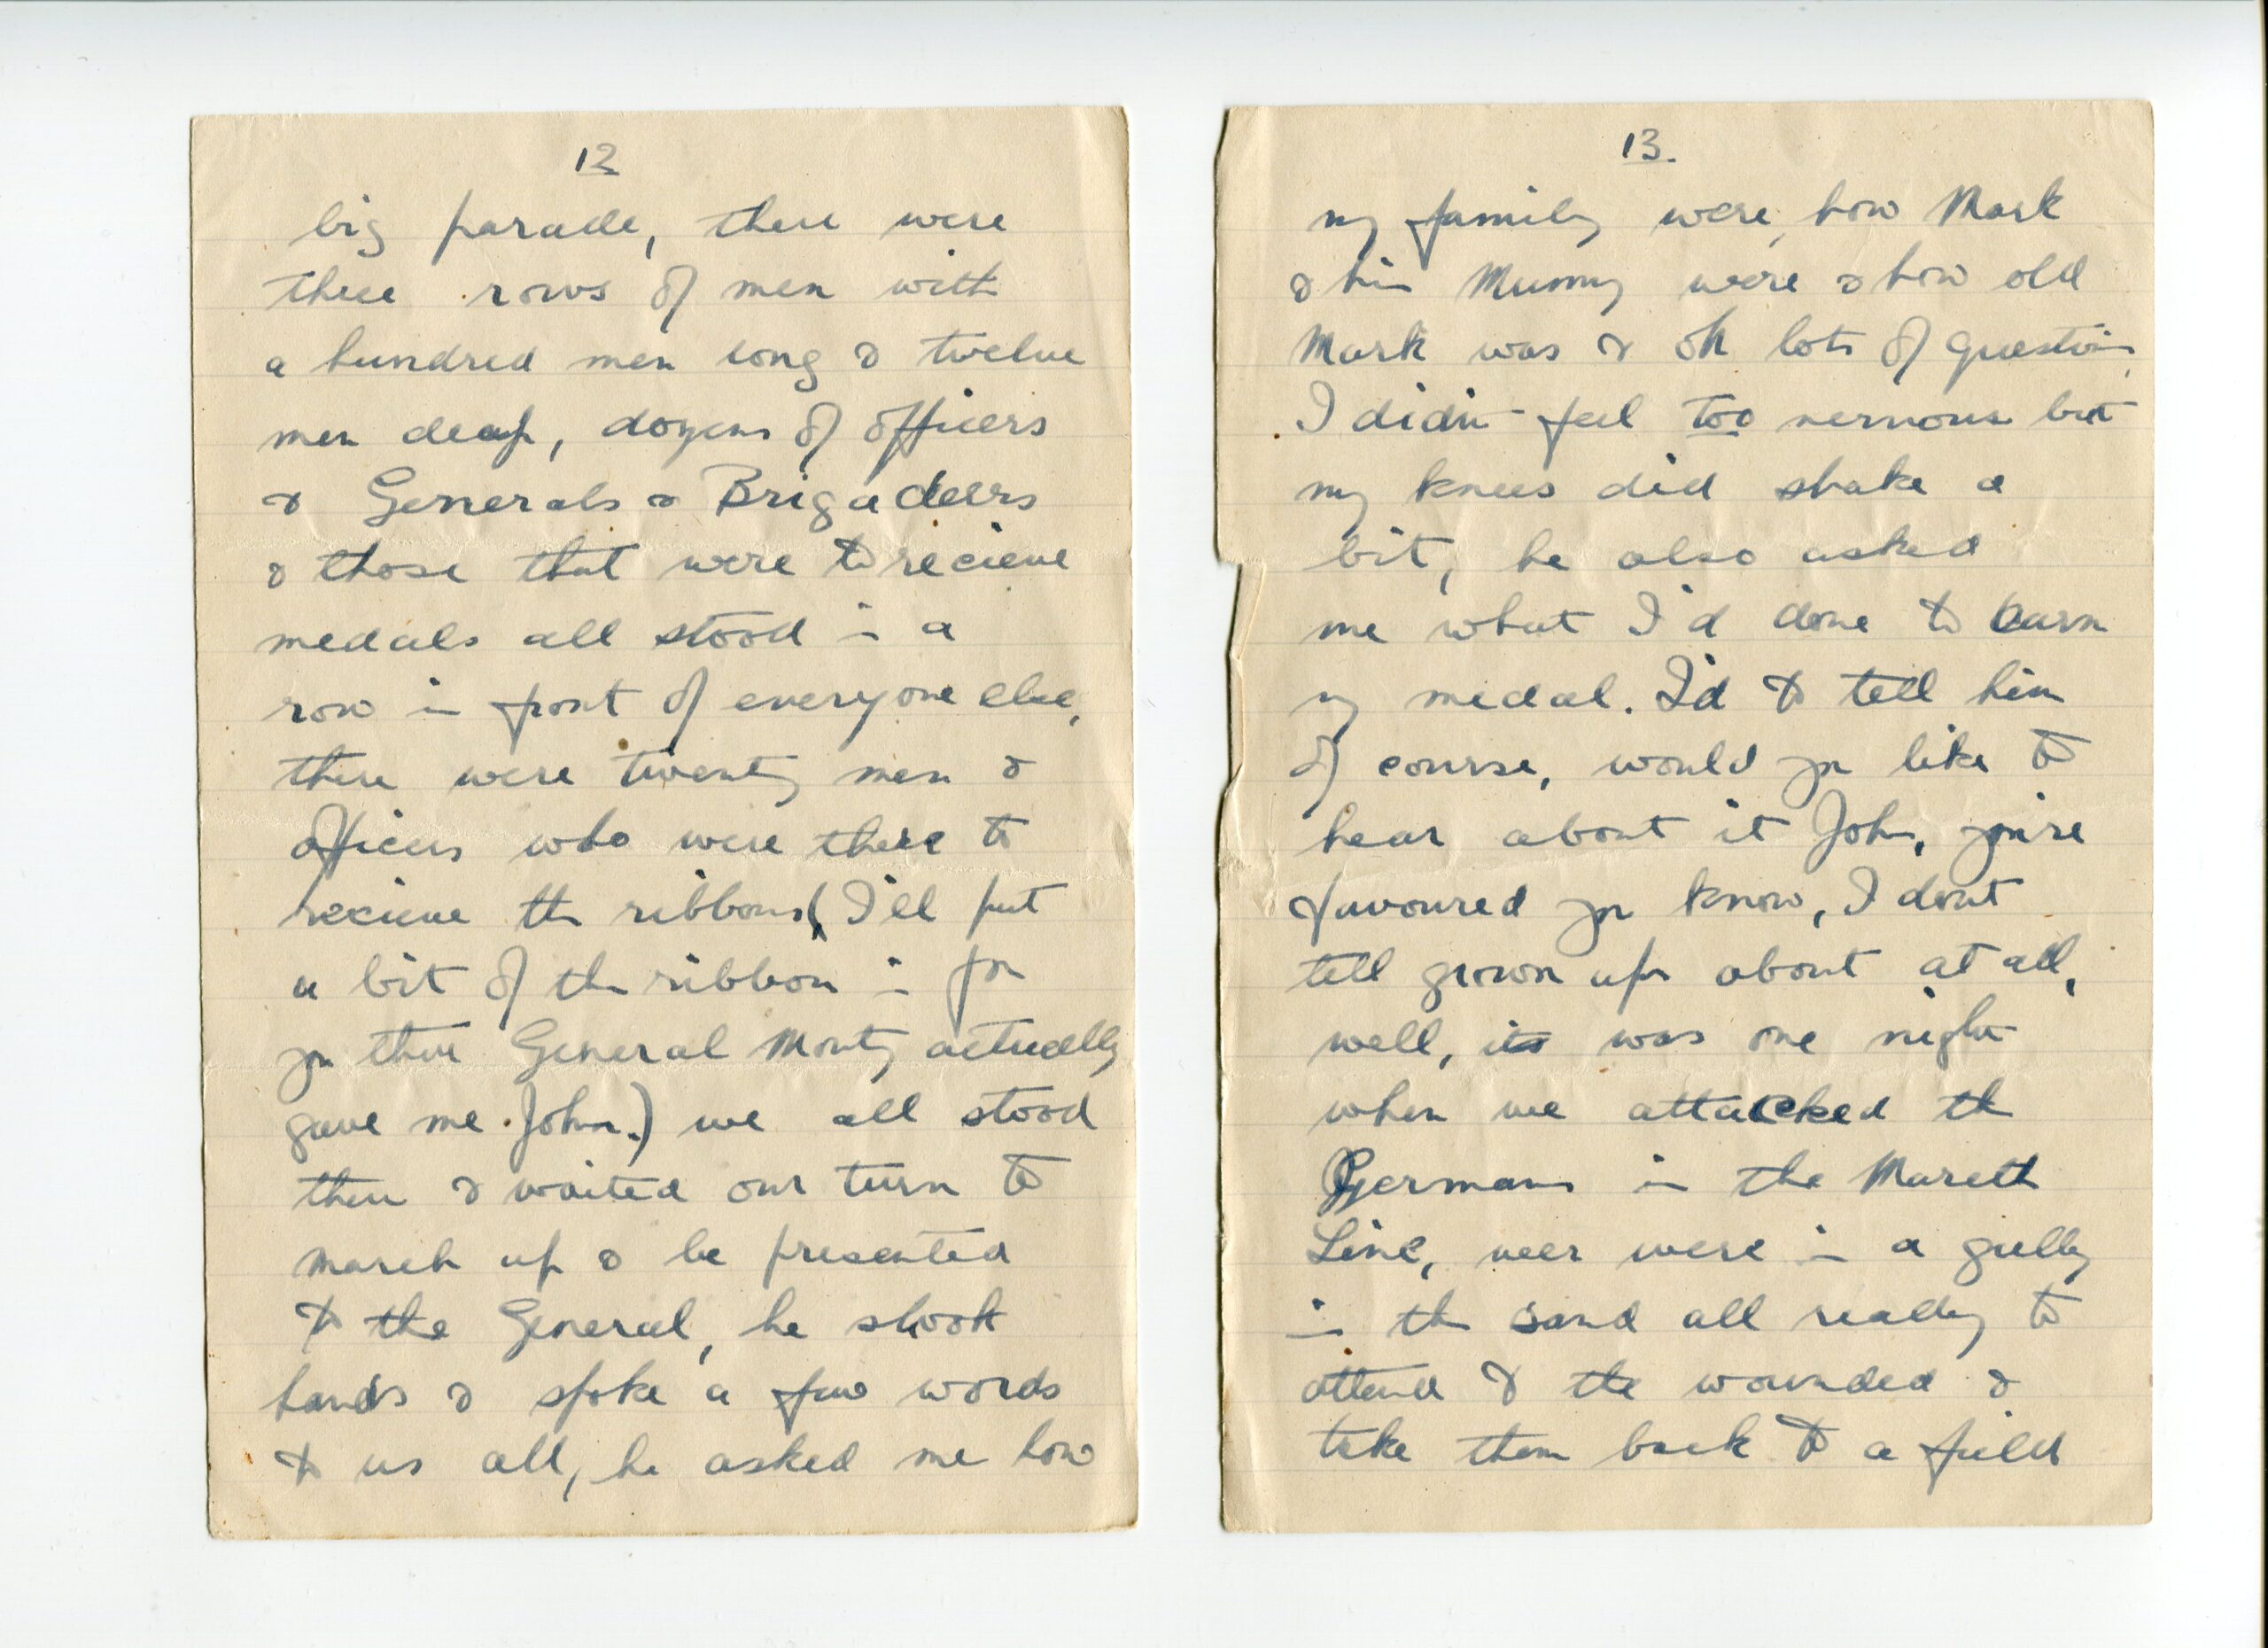 12
big parade, there were
three rows of men with
a hundred men long & twelve
men deep, dozens of officers
& Generals & Brigadeers
& those that were to recieve
medals all stood in a
row in front of everyone else,
there were twenty men &
officers who were there to
recieve the ribbons (I'll put
a bit of the ribbon in for
you that General Monty actually
gave me John.) we all stood
there & waited our turn to
march up & be presented
to the General, he shook
hands & spoke a few words
to us all, he asked me how
13.
my family were, how Mark
& his Mummy were & how old
Mark was & oh lots of questions,
I didn't feel too nervous but
my knees did shake a
bit, he also asked
me what I'd done to earn
my medal. I'd to tell him
of course, would you like to
hear about it John, you're
favoured you know, I dont
tell grown ups about at all,
well, it was one night
when we attacked the
Germans in the Mareth
Line, were in a gulley
in the sand all ready to
attend to the wounded &
take them back to a field